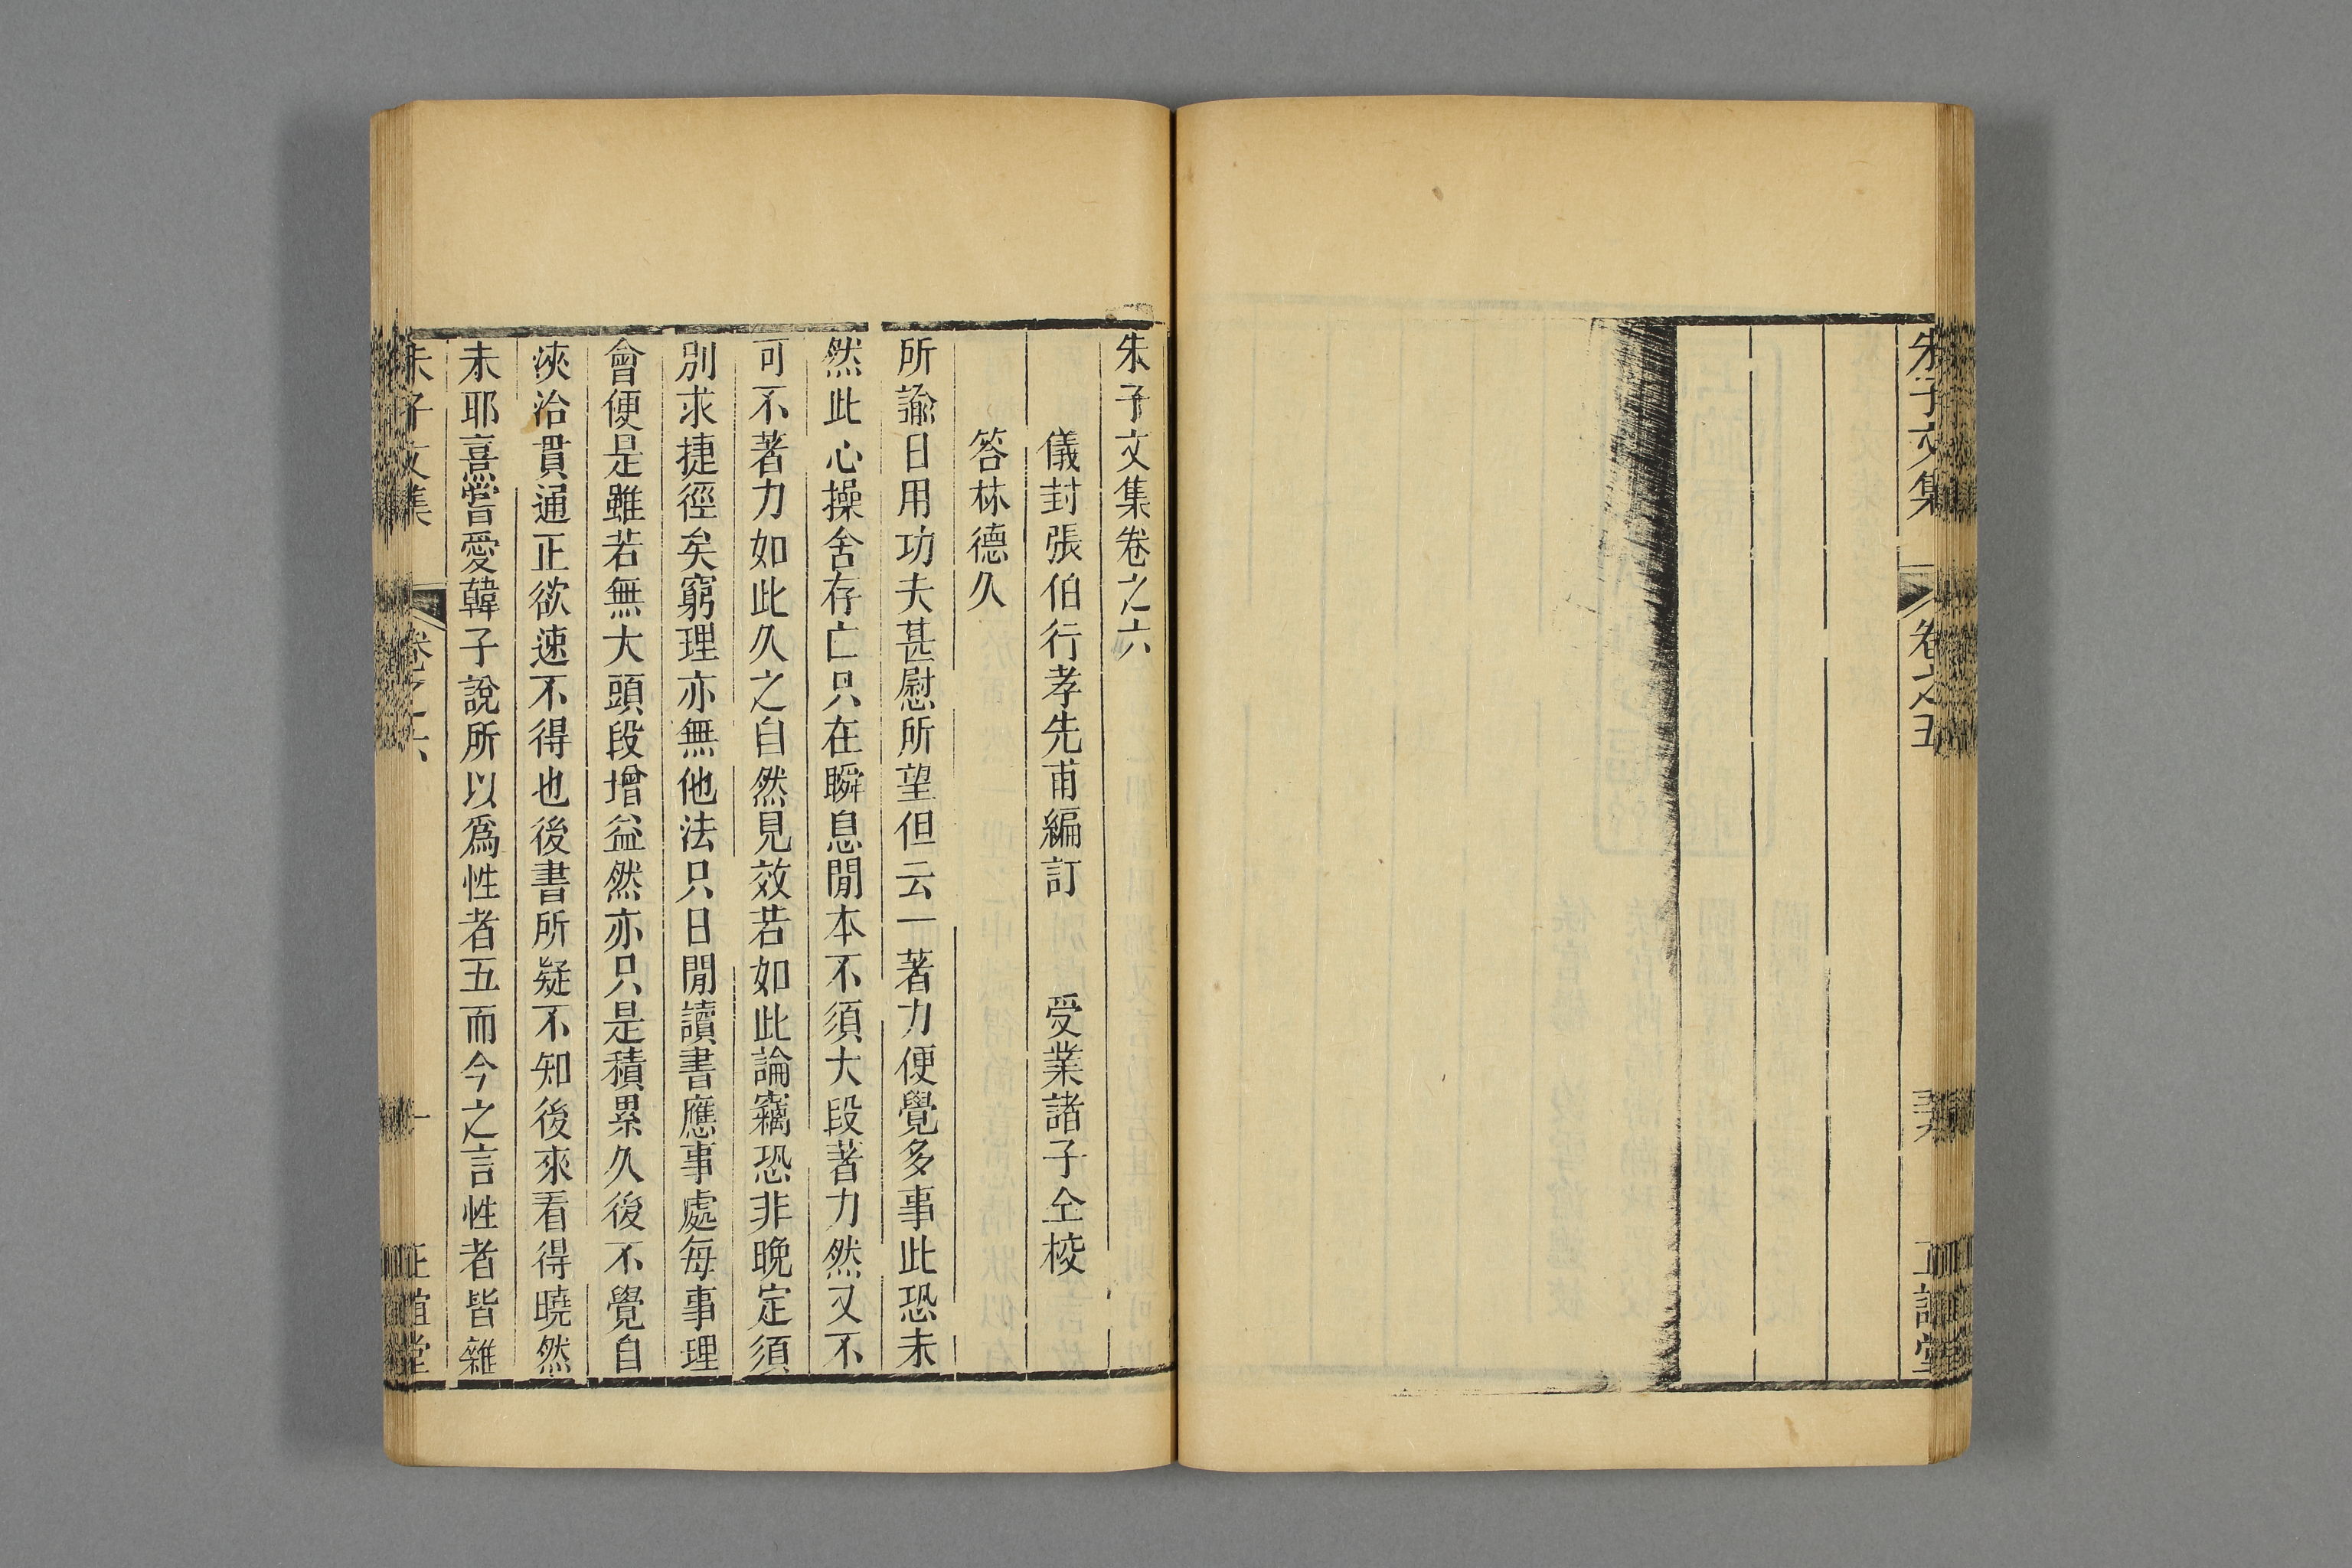 朱子文集
卷之五
正誼堂
朱子文集卷之六
儀封張伯行孝先甫編訂　受業諸子仝校
答林德久
所諭日用功夫甚慰所望但云一著力便覺多事此恐未
然此心操舍存亡只在瞬息閒本不須大段著力然又不
可不著力如此久之自然見效若如此論竊恐非晚定須
別求捷徑矣窮理亦無他法只日閒讀書應事處每事理
會便是雖若無大頭段增益然亦只是積累久後不覺自
浹洽貫通正欲速不得也後書所疑不知後來看得曉然
未耶熹嘗愛韓子說所以爲性者五而今之言性者皆雜
朱子文集
卷之六
一
正誼堂